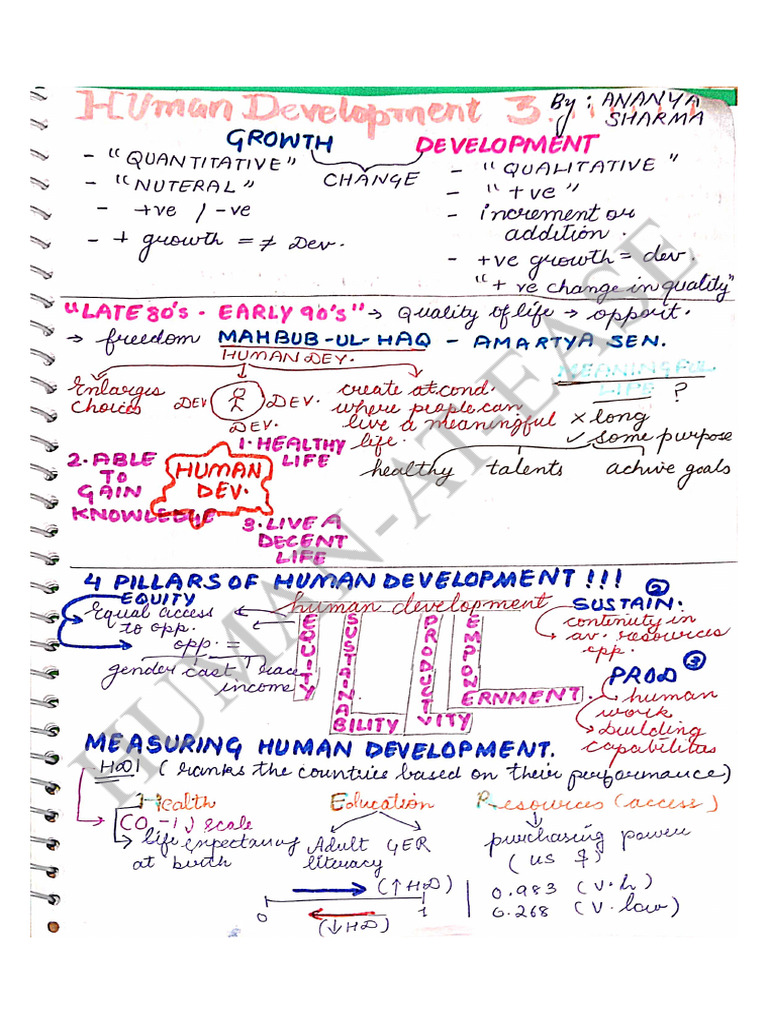 Human Development 3.
By: ANANYA SHARMA
GROWTH DEVELOPMENT
CHANGE
- "QUANTITATIVE"
- "NUTERAL"
- +ve / -ve
- + growth = ≠ Dev.
- "QUALITATIVE"
- "+ve"
- increment or
addition.
- +ve growth = dev.
"+ve change in quality"
"LATE 80's - EARLY 90's" → Quality of life → opport.
→ freedom MAHBUB-UL-HAQ - AMARTYA SEN.
HUMAN DEV.
Enlarges
choices
DEV DEV.
DEV.
create at cond.
where people can
live a meaningful
life.
MEANINGFUL
LIFE ?
× long
✓ some purpose
healthy talents achive goals
1. HEALTHY
LIFE
2. ABLE
TO
GAIN
KNOWLEDGE
HUMAN
DEV.
3. LIVE A
DECENT
LIFE
4 PILLARS OF HUMAN DEVELOPMENT !!!
EQUITY
equal access
to opp.
opp. =
gender cast race
income
human development
EQUITY
SUSTAINABILITY
PRODUCTVITY
EMPONERNMENT.
② SUSTAIN:
continuity in
av. resources
opp.
PROD ③
human
work
building
capabilities
MEASURING HUMAN DEVELOPMENT.
HDI (ranks the countries based on their performance)
Health Education Resources (access)
(0-1) scale
life expectancy
at birth
Adult
literacy
GER
purchasing power
(US $)
(↑HD)
0 1
(↓HD)
0.983 (V.h)
0.268 (V.low)
HUMAN-AT-EASE